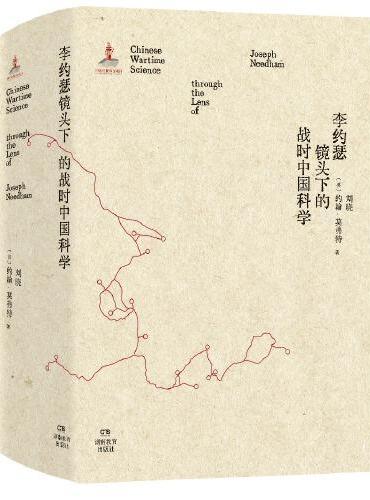 Chinese
Wartime
Science
through
the
Lens
of
Joseph
Needham
李约瑟镜头下
的战时中国科学
刘晓
(英) 约翰·莫弗特 著
湖南教育
出版社
Chinese
Wartime
Science
through
the
Lens
of
Joseph
Needham
李约瑟
镜头下的
战时中国科学
刘晓
(英) 约翰·莫弗特 著